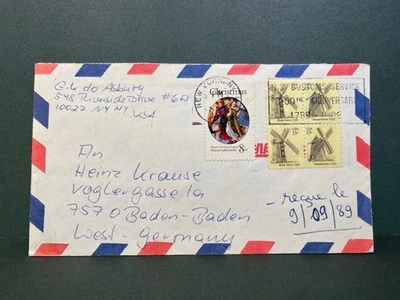 G. L. do Asbury
548 Riverside Drive #6A
10027 NY NY
USA
NEW YORK
Christmas
8c
U.S. CUSTOMS SERVICE
ANNIVERSARY
1789
An
Heinz Krause
Voglergasse 1a
7570 Baden-Baden
West-Germany
reçue le
9/09/89